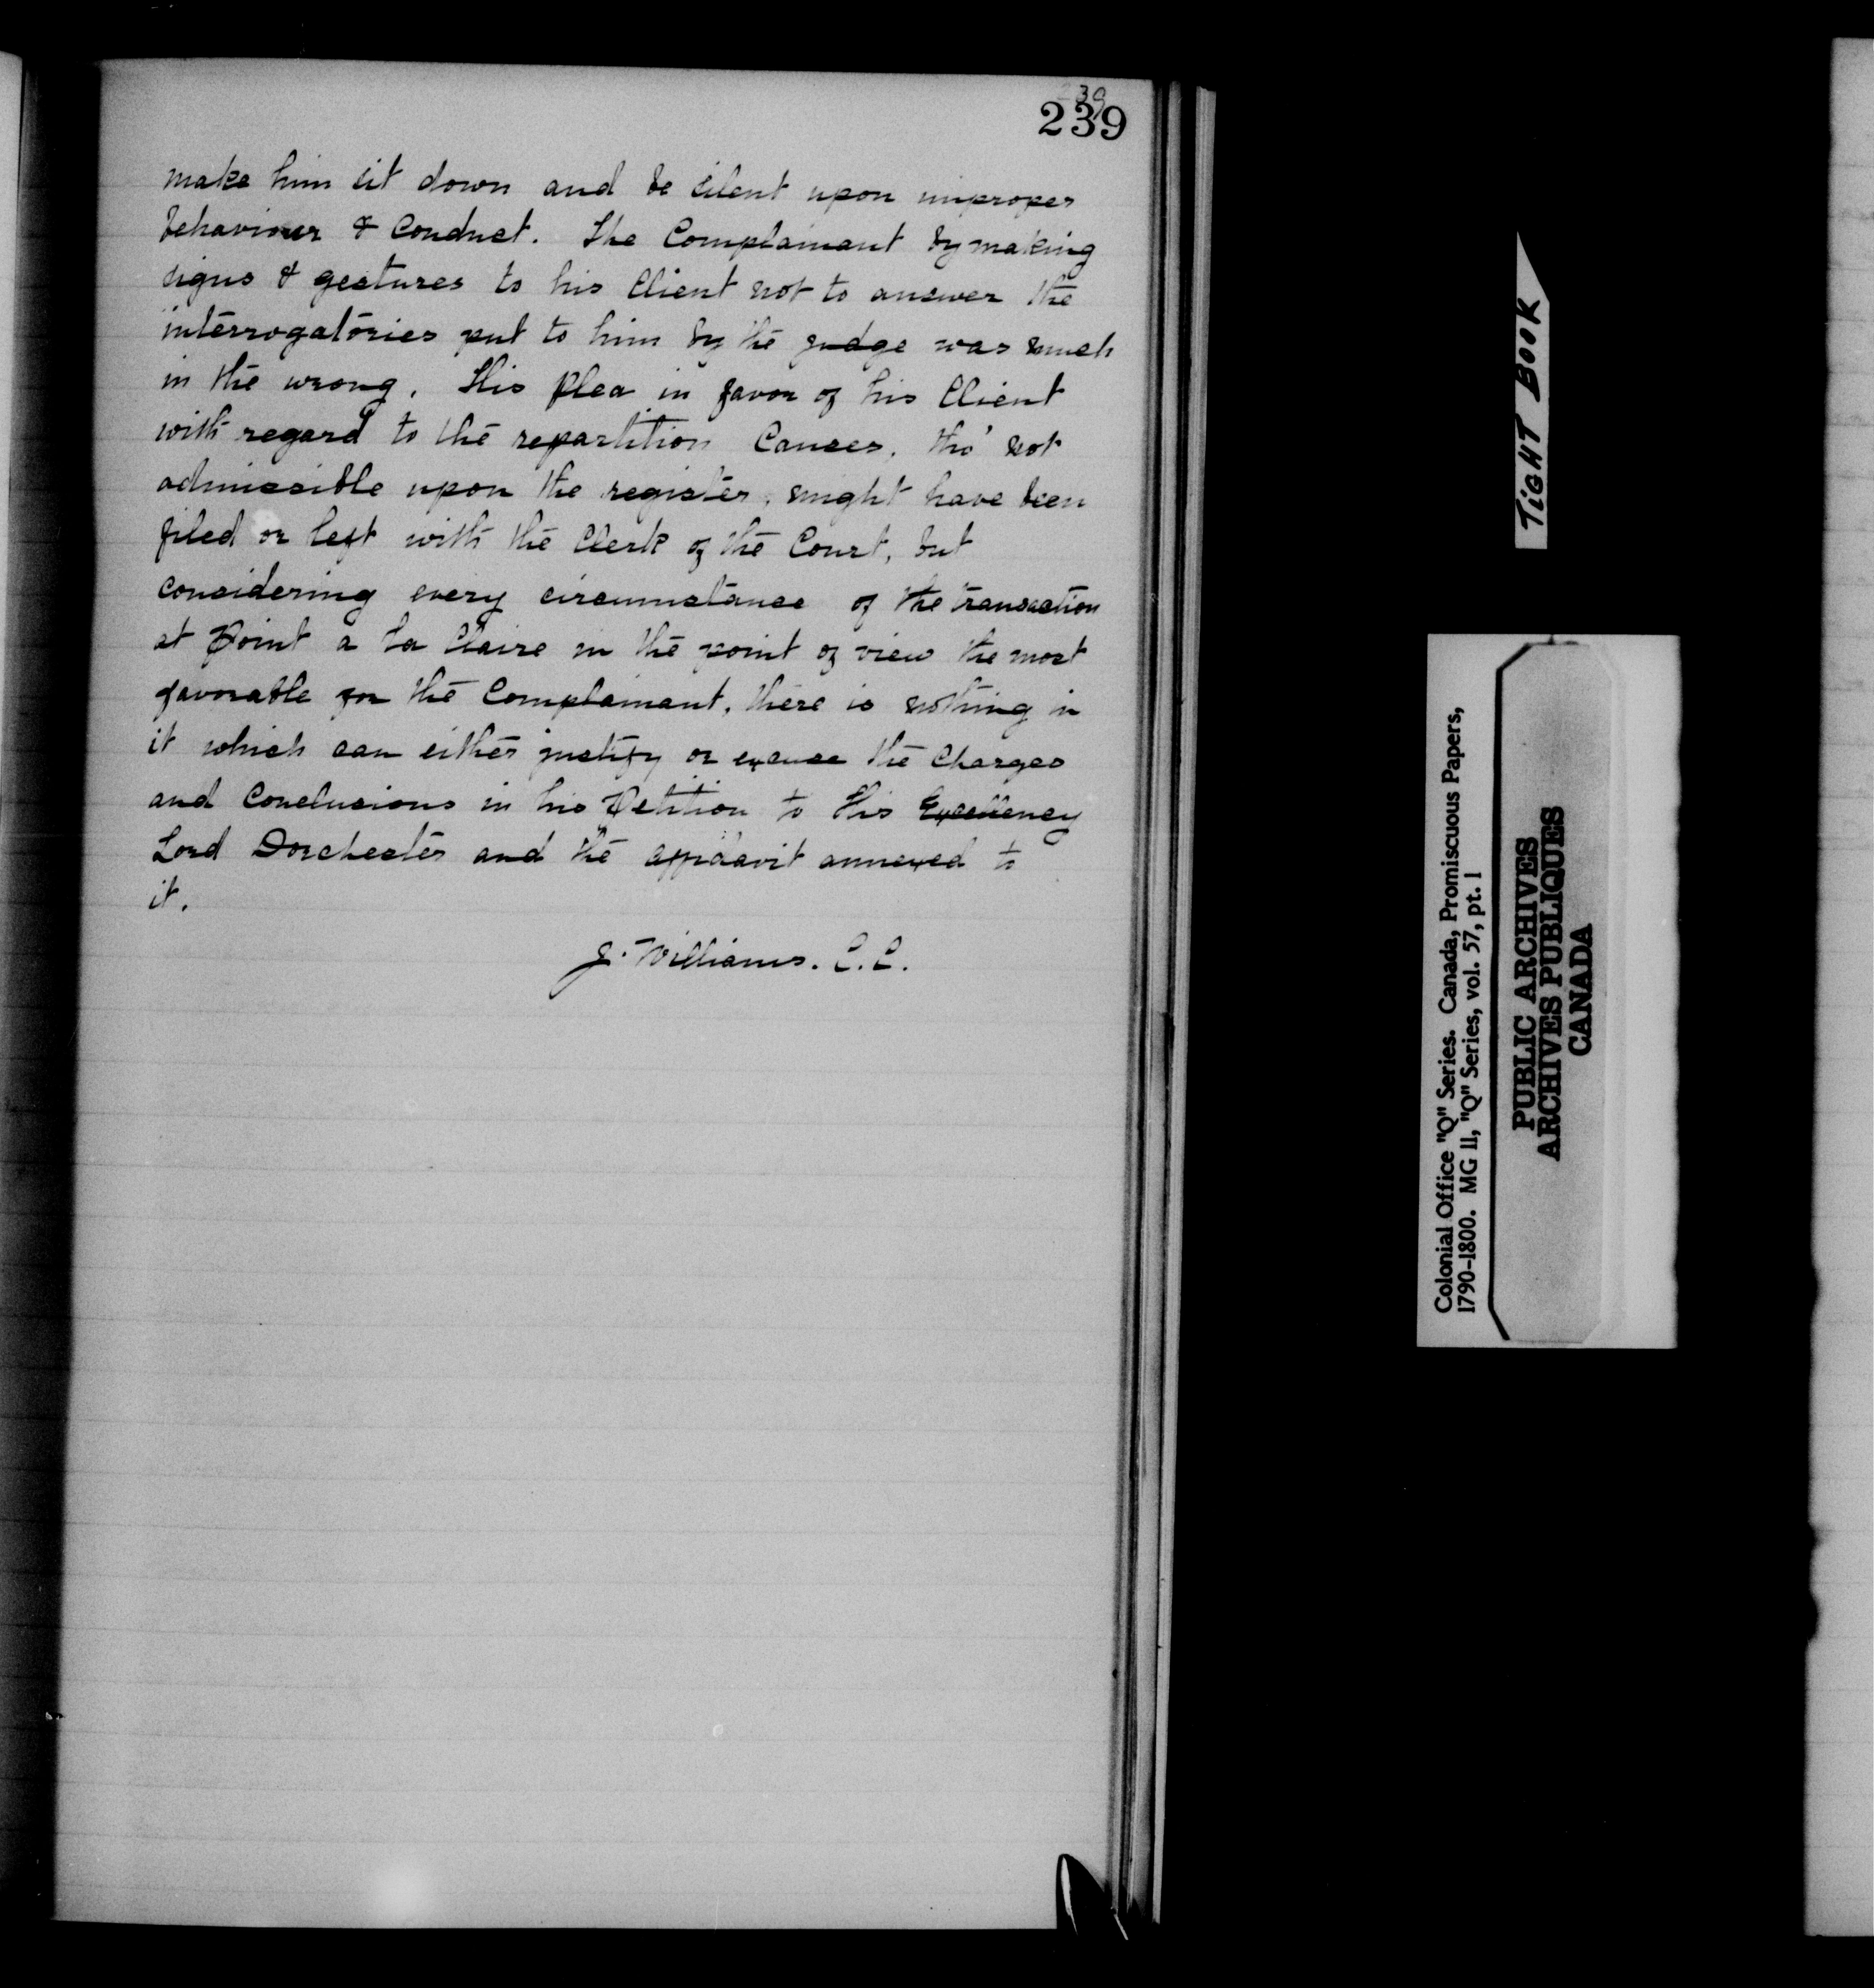 239
239
make him sit down and be silent upon improper
behaviour & Conduct. The Complainant by making
signs & gestures to his Client not to answer the
interrogatories put to him by the judge was much
in the wrong. His plea in favor of his Client
with regard to the repartition Causes, tho' not
admissible upon the register, might have been
filed or left with the Clerk of the Court, but
considering every circumstance of the transaction
at Point a la Claire in the point of view the most
favorable for the Complainant, there is nothing in
it which can either justify or excuse the Charges
and Conclusions in his Petition to His Excellency
Lord Dorchester and the affidavit annexed to
it.
J. Williams. C.C.
TIGHT BOOK
Colonial Office "Q" Series. Canada, Promiscuous Papers,
1790-1800. MG 11, "Q" Series, vol. 57, pt. 1
PUBLIC ARCHIVES
ARCHIVES PUBLIQUES
CANADA